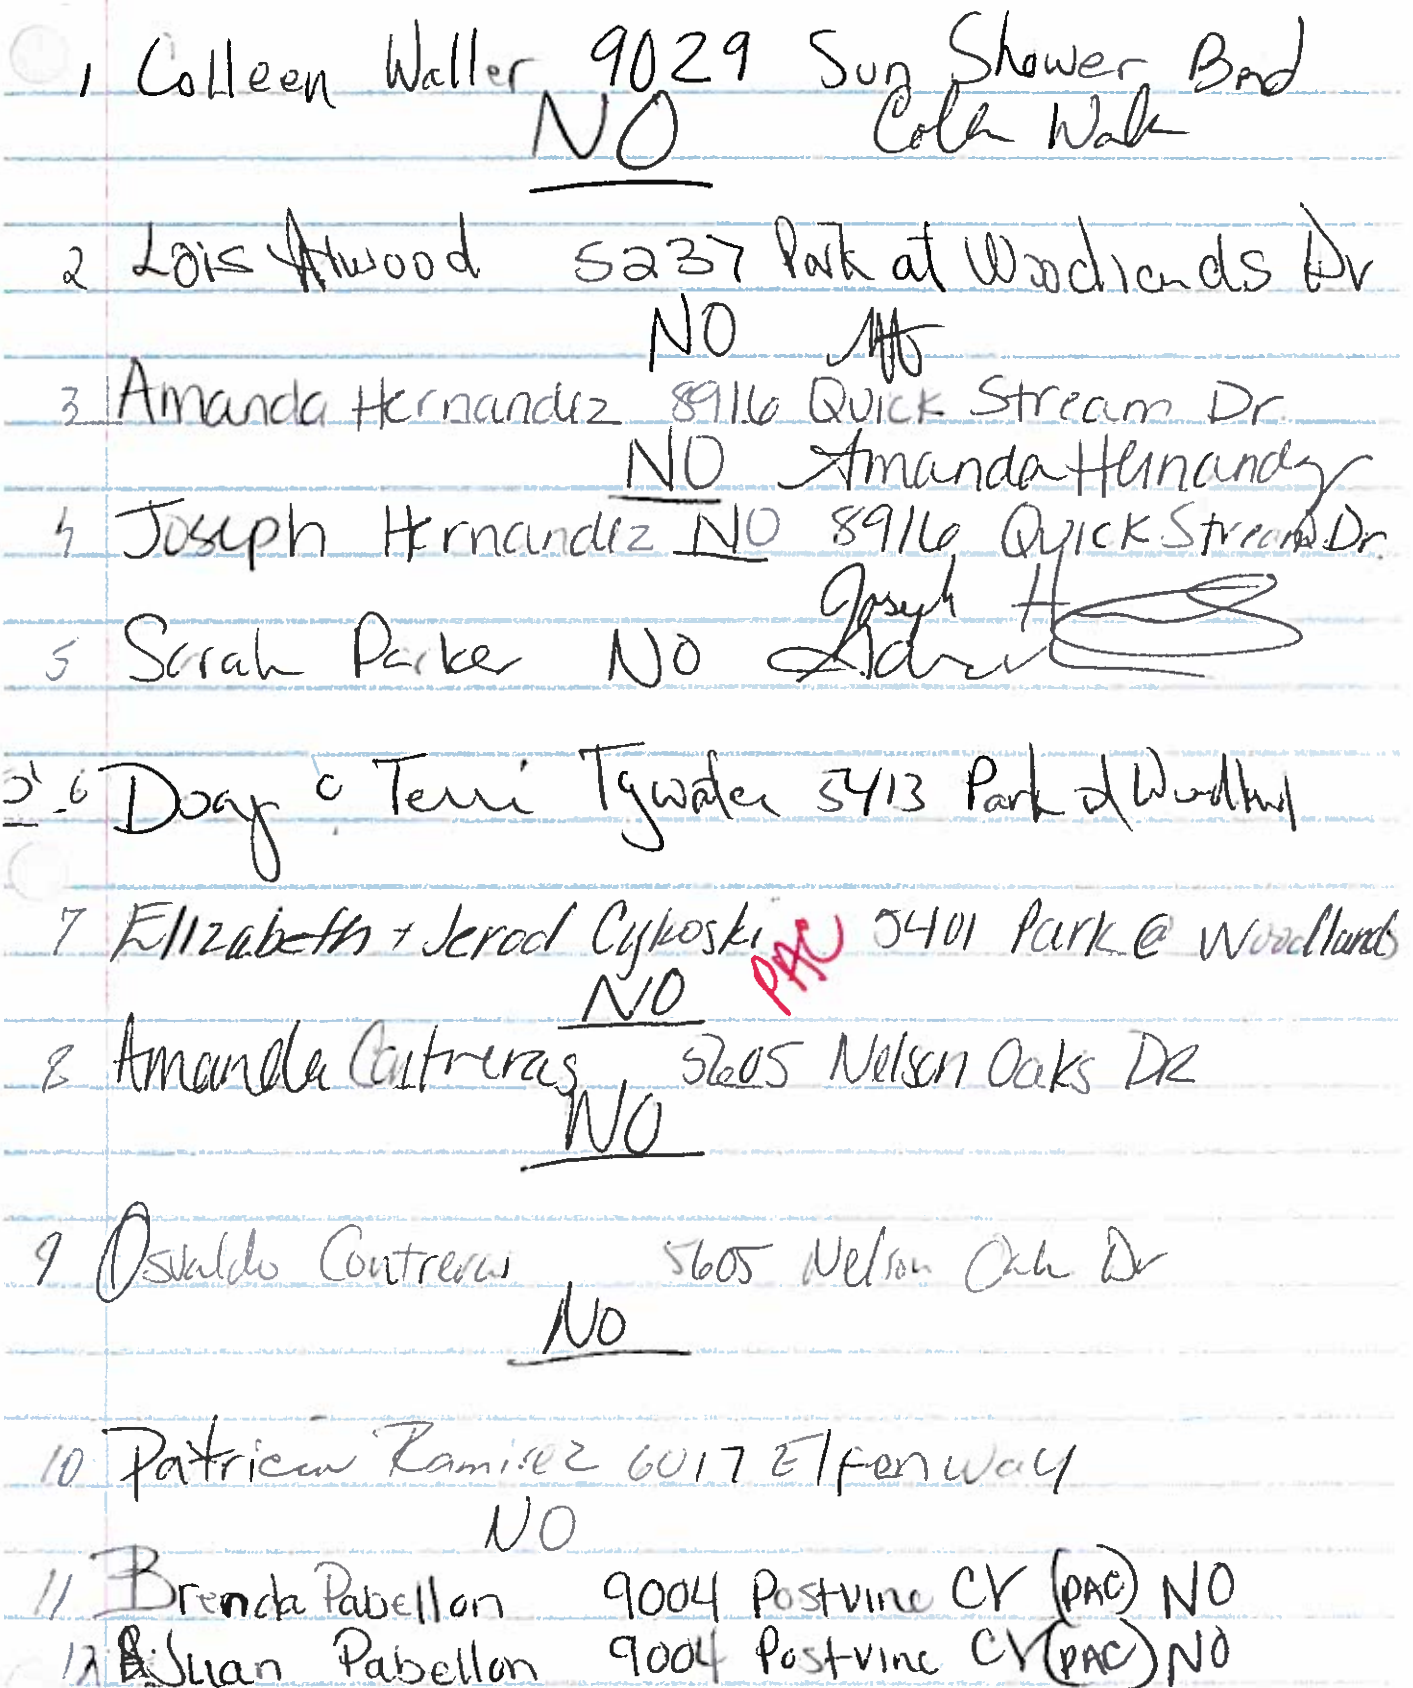 1 Colleen Waller 9029 Sun Shower Bnd
NO
2 Lois Atwood 5237 Park at Woodlands Dr
NO
3 Amanda Hernandez 8916 Quick Stream Dr.
NO Amanda Hernandez
4 Joseph Hernandez NO 8916 Quick Stream Dr.
Joseph H
5 Sarah Parker NO
6 Doug Terri Tygwater 5413 Park
7 Elizabeth + Jerod Cykoski PAC 5401 Park @ Woodlands
NO
8 Amanda Contreras, 5605 Nelson Oaks DR
NO
9 Osvaldo Contreras, 5605 Nelson Oak Dr
No
10 Patricia Ramirez 6017 Elfen Way
NO
11 Brenda Pabellon 9004 Postvine CV (PAC) NO
12 Juan Pabellon 9004 Postvine CV (PAC) NO